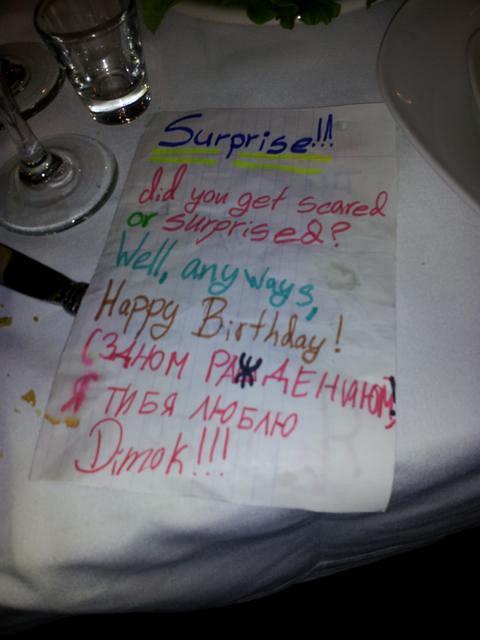 Surprise!!!
did you get scared
or surprised?
Well, anyways,
Happy Birthday!
(ЗДНОМ РАЖДЕНИЮМ!
Я ТИБЯ ЛЮБЛЮ
Dimok!!!